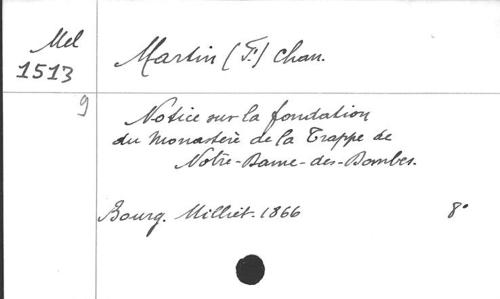 Mel
1513
9
Martin (F.) chan.
Notice sur la fondation
du Monastère de la Trappe de
Notre-Dame-des-Dombes.
Bourg. Milliet. 1866 8°